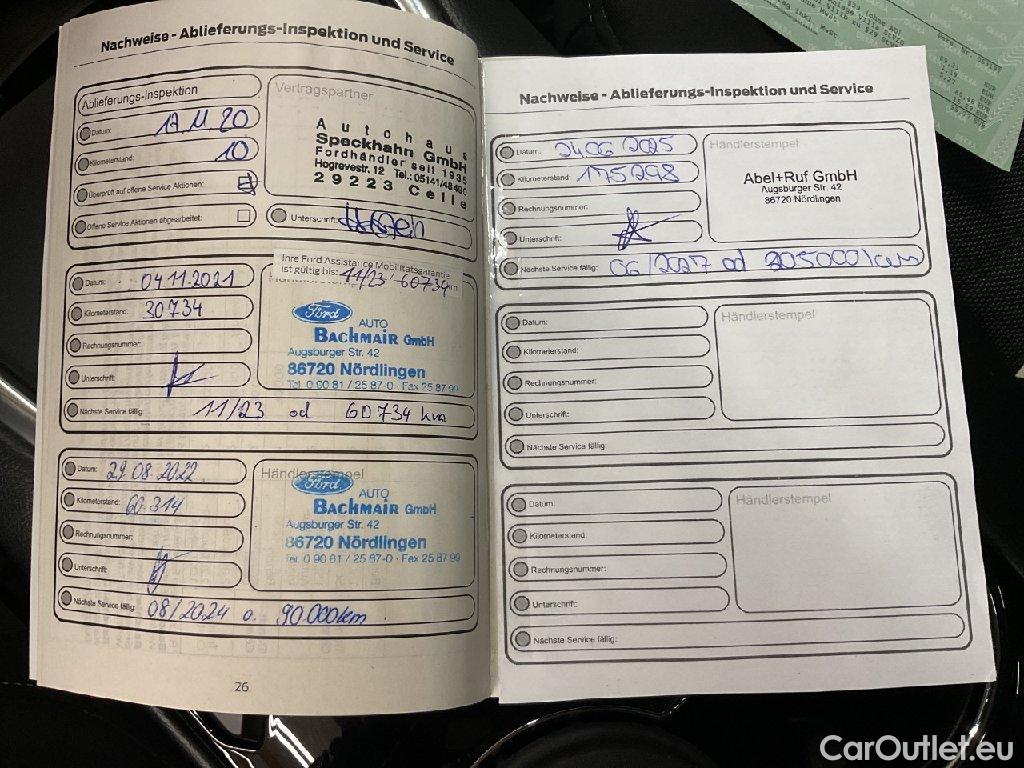 Nachweise - Ablieferungs-Inspektion und Service
Ablieferungs-Inspektion
Datum: 17 11 20
Kilometerstand: 10
Überprüft auf offene Service Aktionen:
Offene Service Aktionen abgearbeitet:
Vertragspartner
Autohaus
Speckhahn GmbH
Fordhändler seit 1935
Hogrevestr. 12 Tel.: 05141/48400
29223 Celle
Unterschrift:
Ihre Ford Assistance Mobilitätsgarantie
ist gültig bis: 11/23 60734 km
Datum: 04.11.2021
Kilometerstand: 30734
Rechnungsnummer:
Unterschrift:
Nächste Service fällig: 11/23 od 60734 km
Ford
AUTO
BACHMAIR GmbH
Augsburger Str. 42
86720 Nördlingen
Tel. 0 90 81 / 25 87-0 · Fax 25 87 99
Datum: 29.08.2022
Kilometerstand: 60.314
Rechnungsnummer:
Unterschrift:
Nächste Service fällig: 08/2024 o. 90.000km
Händlerstempel
Ford
AUTO
BACHMAIR GmbH
Augsburger Str. 42
86720 Nördlingen
Tel. 0 90 81 / 25 87-0 · Fax 25 87 99
26
Nachweise - Ablieferungs-Inspektion und Service
Datum: 24.06/2025
Kilometerstand: 175298
Rechnungsnummer:
Unterschrift:
Nächste Service fällig: 06/2027 od 205000 km
Händlerstempel
Abel+Ruf GmbH
Augsburger Str. 42
86720 Nördlingen
Datum:
Kilometerstand:
Rechnungsnummer:
Unterschrift:
Nächste Service fällig:
Händlerstempel
Datum:
Kilometerstand:
Rechnungsnummer:
Unterschrift:
Nächste Service fällig:
Händlerstempel
CarOutlet.eu